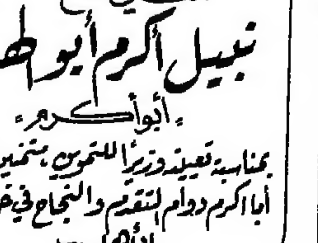 نبيل أكرم أبو
"أبو أكرم"
بمناسبة تعيينه وزيرًا للتموين، متمنين
أبا أكرم دوام التقدم والنجاح في